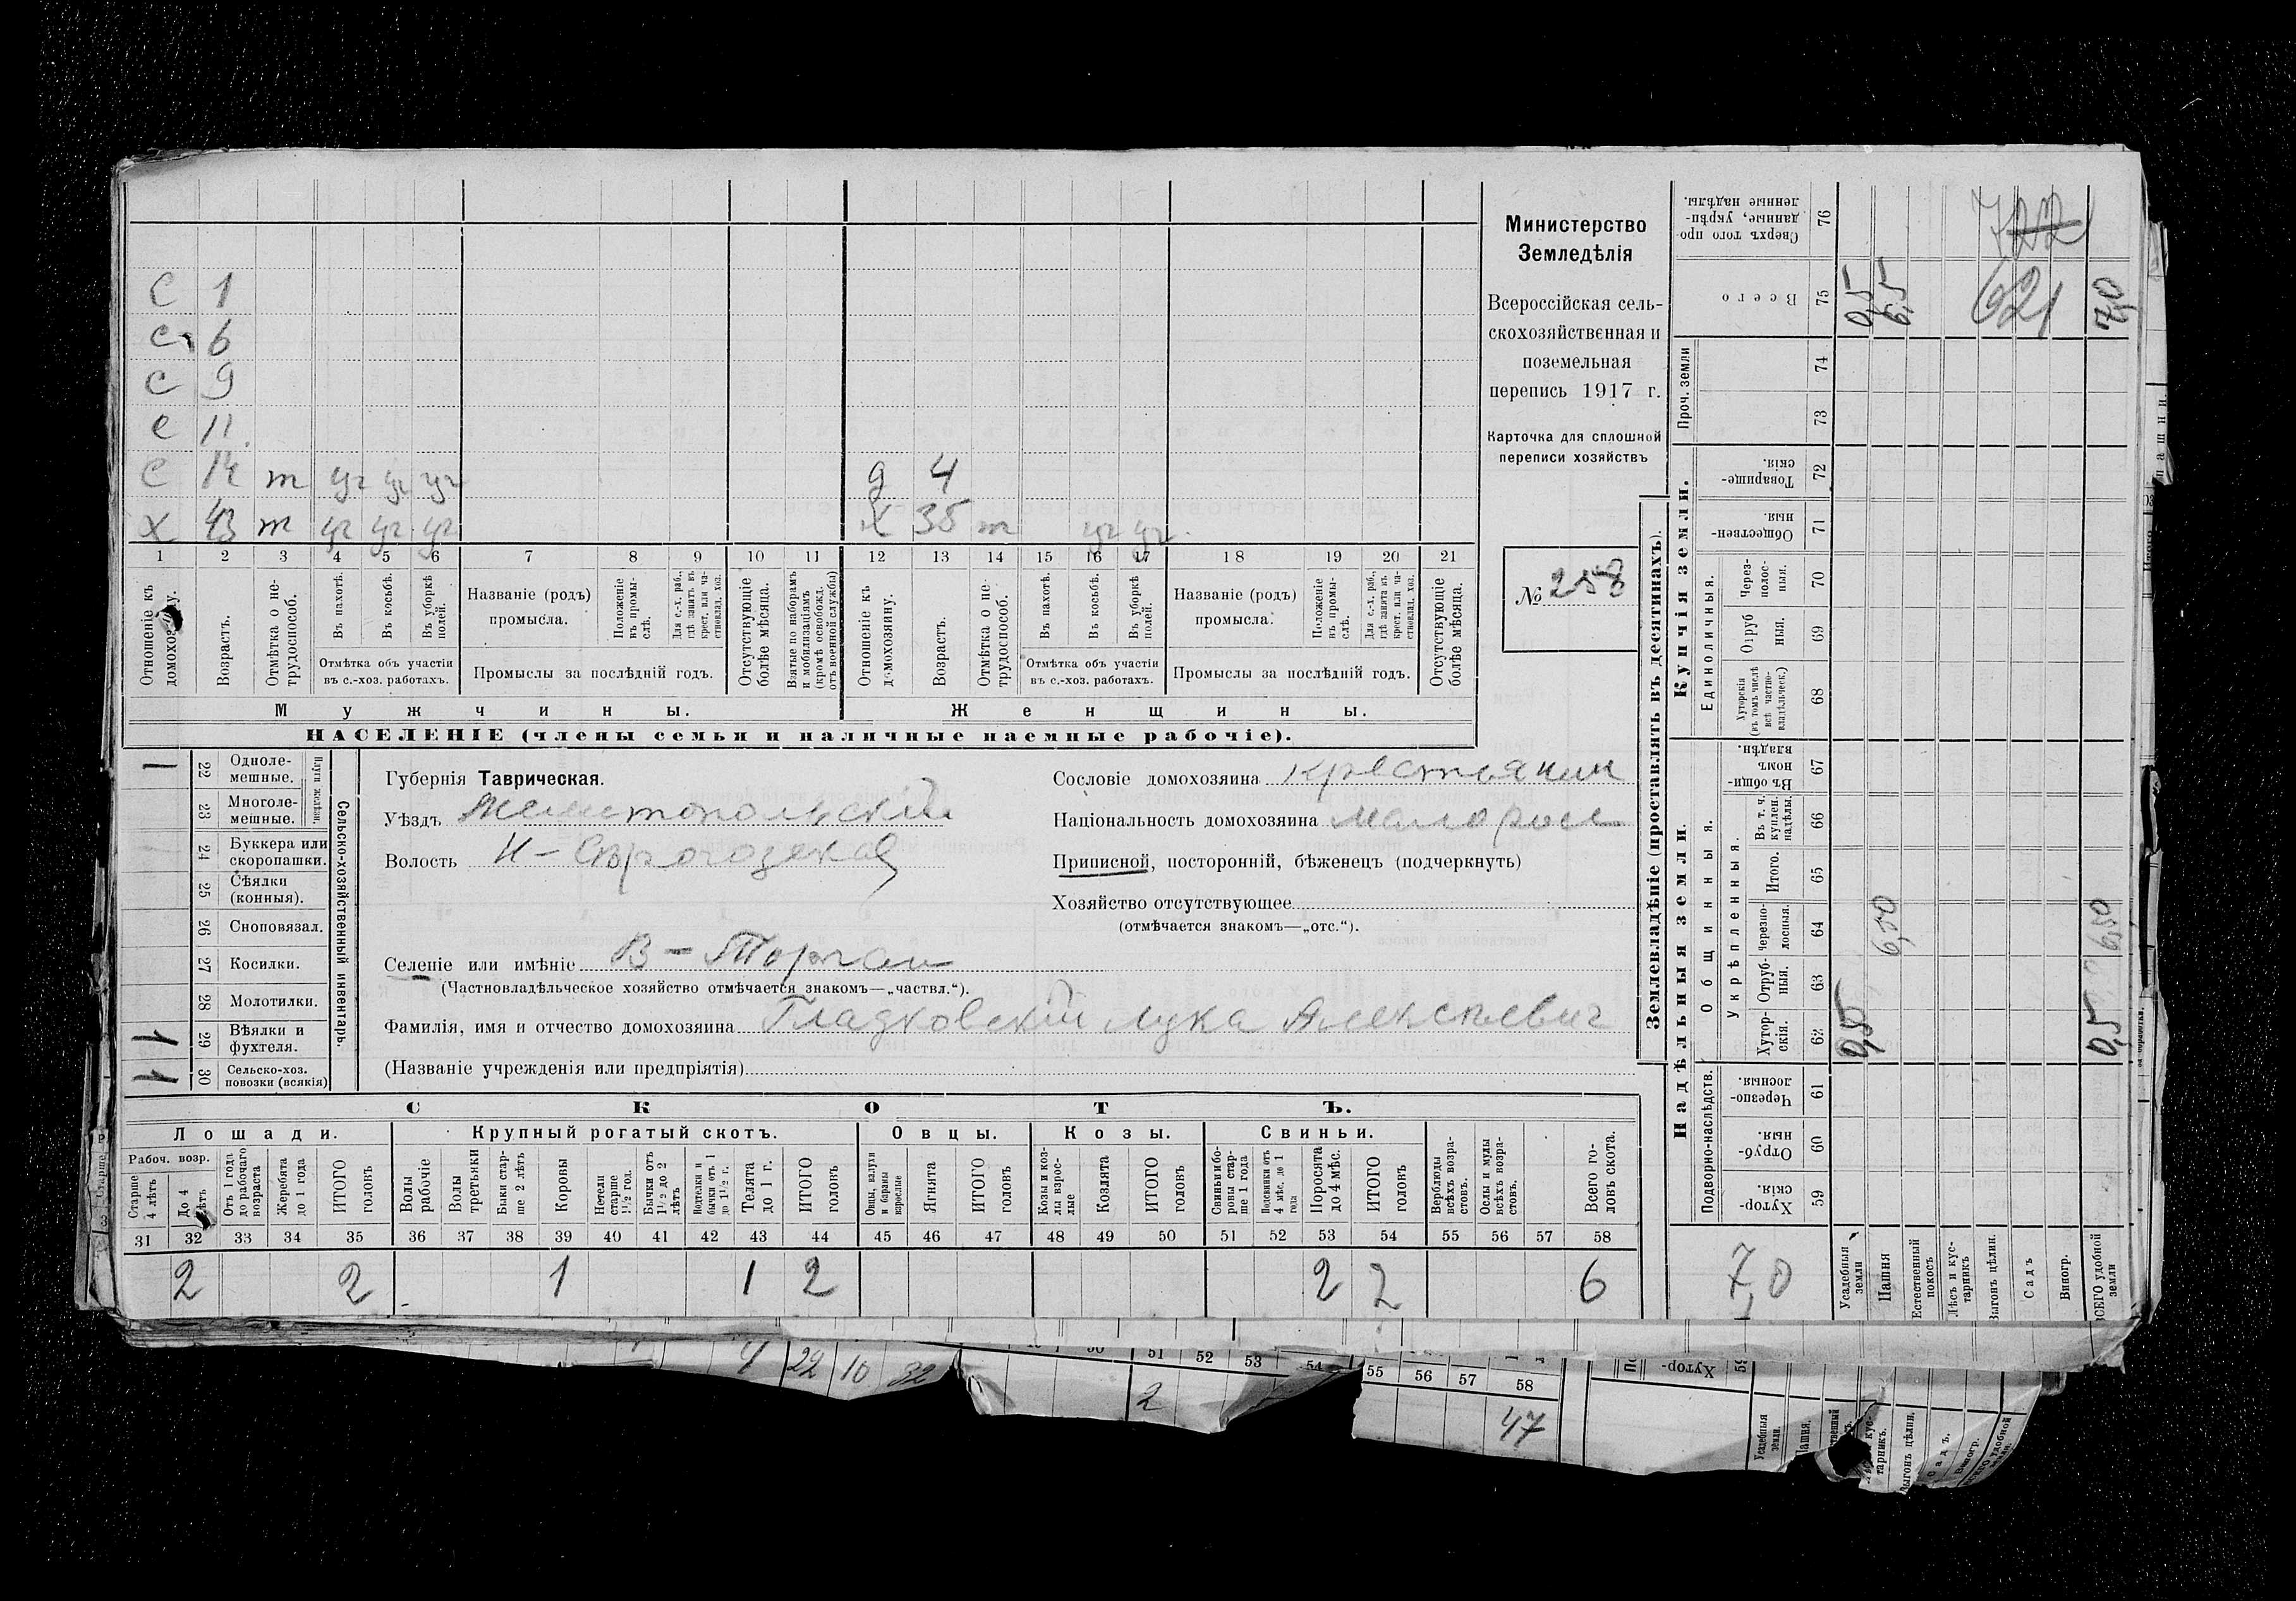 С 1
С 6
С 9
С 11
С 14 т уч уч уч
д 4
Х 43 т уч уч уч
Х 35 т уч уч
1 2 3 4 5 6 7 8 9 10 11 12 13 14 15 16 17 18 19 20 21
Отношеніе къ домохозяину.
Возрастъ.
Отмѣтка о нетрудоспособ.
Въ пахотѣ.
Въ косьбѣ.
Въ уборкѣ полей.
Отмѣтка объ участіи въ с.-хоз. работахъ.
Названіе (родъ) промысла.
Положеніе въ промыслѣ.
Для с.-х. раб., гдѣ занятъ въ крест. или частновлад. хоз.
Промыслы за послѣдній годъ.
Отсутствующіе болѣе мѣсяца.
Взятые по наборамъ и мобилизаціямъ (кромѣ освобожд. отъ военной службы)
Отношеніе къ домохозяину.
Возрастъ.
Отмѣтка о нетрудоспособ.
Въ пахотѣ.
Въ косьбѣ.
Въ уборкѣ полей.
Отмѣтка объ участіи въ с.-хоз. работахъ.
Названіе (родъ) промысла.
Положеніе въ промыслѣ.
Для с.-х. раб., гдѣ занята въ крест. или частновлад. хоз.
Промыслы за послѣдній годъ.
Отсутствующіе болѣе мѣсяца.
Мужчины.
Женщины.
НАСЕЛЕНІЕ (члены семьи и наличные наемные рабочіе).
Министерство
Земледѣлія
Всероссійская сель-
скохозяйственная и
поземельная
перепись 1917 г.
Карточка для сплошной
переписи хозяйствъ
№ 258
Сельско-хозяйственный инвентарь.
Плуги желѣзн.
1 22 Одноле-мешные.
23 Многоле-мешные.
24 Буккера или скоропашки.
25 Сѣялки (конныя).
26 Сноповязал.
27 Косилки.
28 Молотилки.
1 29 Вѣялки и фухтеля.
1 30 Сельско-хоз. повозки (всякія)
Губернія Таврическая.
Уѣздъ Мелитопольскій
Волость Н-Сѣрогозская
Сословіе домохозяина крестьянин
Національность домохозяина малорос
Приписной, посторонній, бѣженецъ (подчеркнуть)
Хозяйство отсутствующее
(отмѣчается знакомъ—„отс.“).
Селеніе или имѣніе В-Торгаи
(Частновладѣльческое хозяйство отмѣчается знакомъ—„частвл.“).
Фамилія, имя и отчество домохозяина Гладковскій Лука Алексѣевич
(Названіе учрежденія или предпріятія)
СКОТЪ.
Лошади.
Крупный рогатый скотъ.
Овцы.
Козы.
Свиньи.
Рабоч. возр.
Старше 4 лѣтъ
До 4 лѣтъ
Отъ 1 года до рабочаго возраста
Жеребята до 1 года
ИТОГО головъ
Волы рабочіе
Волы третьяки
Быки старше 2 лѣтъ
Коровы
Нетели старше 1½ год.
Бычки отъ 1½ до 2 лѣтъ
Нетелки и бычки отъ 1 до 1½ г.
Телята до 1 г.
ИТОГО головъ
Овцы, валухи и бараны взрослые
Ягнята
ИТОГО головъ
Козы и козлы взрослые
Козлята
ИТОГО головъ
Свиньи и боровы старше 1 года
Подсвинки отъ 4 мѣс. до 1 года
Поросята до 4 мѣс.
ИТОГО головъ
Верблюды всѣхъ возрастовъ.
Ослы и мулы всѣхъ возрастовъ.
Всего головъ скота.
31 32 33 34 35 36 37 38 39 40 41 42 43 44 45 46 47 48 49 50 51 52 53 54 55 56 57 58
2 2 1 1 2 2 2 6
Землевладѣніе (проставлять въ десятинахъ).
Надѣльныя земли.
Купчія земли.
Проч. земли
Подворно-наслѣдств.
Общинныя.
Укрѣпленныя.
Единоличныя.
Хуторскія 59
Отрубныя 60
Черезполосныя. 61
Хуторскія. 62
Отрубныя. 63
Черезполосныя. 64
Итого. 65
Въ т. ч. куплен. надѣлы. 66
Въ общинномъ владѣн. 67
Хуторскія (въ томъ числѣ всѣ частновладѣльческ.) 68
Отрубныя. 69
Черезполосныя. 70
Общественныя. 71
Товарищескія. 72
73
74
Всего 75
Сверхъ того проданные, укрѣпленные надѣлы. 76
Усадебныя земли 0,5 0,5
Пашня 6,50 6,5
Естественный покосъ
Лѣсъ и кустарникъ
Выгонъ цѣлин.
Садъ
Виногр.
ВСЕГО удобной земли 0,5 6,50 7,0
7,0
722
621
4 22 10 32
51 52 53 54 55 56 57 58
2
47
Хутор- 59
Усадебныя земли.
Пашня.
Выгонъ цѣлин.
Садъ.
Виногр.